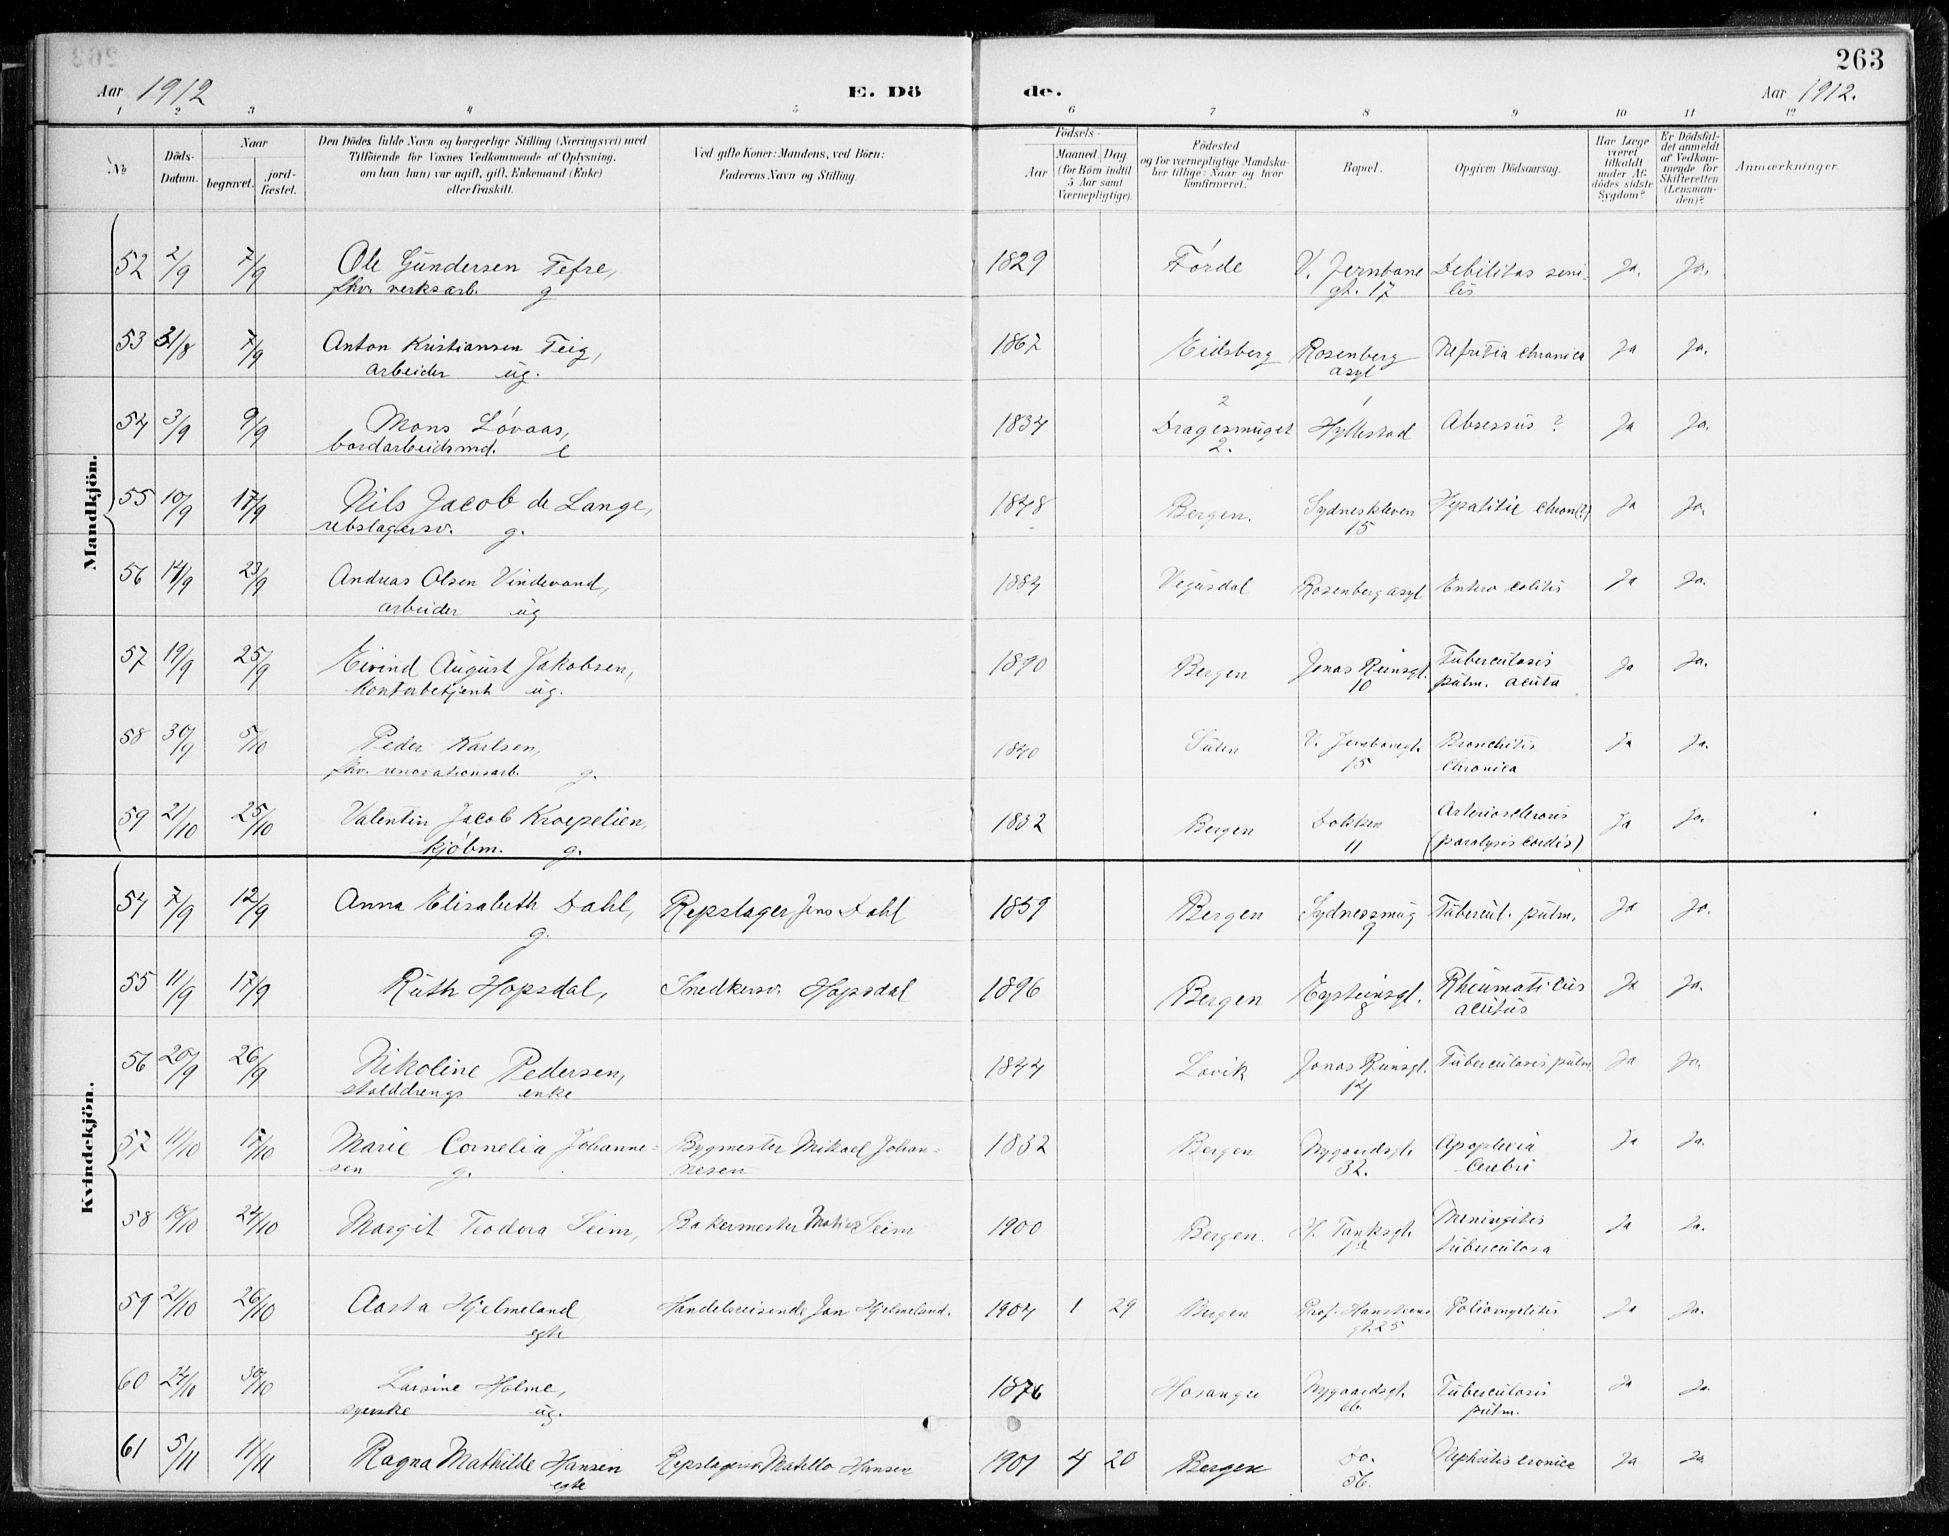 263
Aar 1912 E. Dö de. Aar 1912.
1 2 3 4 5 6 7 8 9 10 11 12
No
Döds-Datum.
Naar
begravet.
jord-fæstet.
Den Dödes fulde Navn og borgerlige Stilling (Næringsvei) med
Tilföiende for Voxnes Vedkommende af Oplysning,
om han (hun) var ugift, gift, Enkemand (Enke)
eller fraskilt.
Ved gifte Koner: Mandens, ved Börn:
Faderens Navn og Stilling.
Födsels-
Aar
Maaned Dag
(for Börn indtil
5 Aar samt
Værnepligtige).
Födested
og for værnepligtige Mandska-
ber tillige: Naar og hvor
konfirmeret.
Bopæl.
Opgiven Dödsaarsag.
Har Læge
været
tilkaldt
under Af-
dödes sidste
Sygdom?
Er Dödsfal-
det anmeldt
af Vedkom-
mende for
Skifteretten
(Lensman-
den)?
Anmærkninger.
Mandkjön.
52 2/9 7/9 Ole Gundersen Tefre, 1829 Förde V. Jernbane Debilitas seni- Ja. Ja.
fhv. verksarb. g gt. 17 lis
53 31/8 7/9 Anton Kristiansen Teig, 1867 Eidsberg Rosenberg Nefritia chronica Ja Ja.
arbeider ug. asyl
54 3/9 9/9 Mons Lövaas, 1834 Dragesmuget Hyllestad Absessus? Ja Ja.
bordarbeidsmd. e 2.
55 10/9 17/9 Nils Jacob de Lange, 1848 Bergen. Sydneskleven Hepatitie chron(?) Ja Ja.
rebslagersv. g. 15
56 14/9 23/9 Andreas Olsen Vindevand, 1884 Vegusdal Rosenberg asyl Entero colitis Ja Ja.
arbeider ug
57 19/9 25/9 Eivind August Jakobsen, 1890 Bergen Jonas Reinsgt. Tuberculosis Ja Ja.
kontorbetjent ug. 10 pulm. acuta
58 30/9 5/10 Peder Karlsen, 1840 Sulen V. Jernbanegt. Bronchitis Ja Ja.
fhv. renovationsarb. g. 15 chronica
59 21/10 25/10 Valentin Jacob Kroepelien, 1832 Bergen Dokken Arteriosclerosis Ja Ja.
kjöbm. g. 11 (paralysis cordis)
Kvindekjön.
54 7/9 12/9 Anna Elisabeth Dahl, Repslager Jens Dahl 1859 Bergen Sydnessmug Tubercul. pulm. Ja Ja.
g. 9
55 11/9 17/9 Ruth Hopsdal, Snedkersv. Hopsdal 1896 Bergen Eysteinsgt. Rheumaticus Ja Ja.
8 acutus
56 20/9 26/9 Nikoline Pedersen, 1844 Lavik Jonas Reinsgt. Tuberculosis pulm. Ja Ja.
stalddrengs enke 14
57 11/10 15/10 Marie Cornelia Johanne- Bygmester Mikael Johan- 1832 Bergen Nygaardsgt. Apoplexia Ja Ja.
sen g. nesen 32. cerebri
58 18/10 24/10 Margit Teodora Seim, Bakermester Matias Seim 1900 Bergen. H. Tanksgt. Meningitis Ja Ja.
tuberculosa
59 21/10 26/10 Aasta Hjelmeland Handelsreisende Jan Hjelmeland. 1904 1 29 Bergen Prof. Hansteens Poliomyelitis Ja Ja.
egte gt. 25
60 24/10 30/10 Larsine Holme, 1876 Hosanger Nygaardsgt. Tuberculosis Ja Ja.
syerske ug. 66 pulm.
61 5/11 11/11 Ragna Mathilde Hansen Repslagersv. Hansen 1901 4 20 Bergen Do. Nephritis cronica Ja Ja
egte 56.